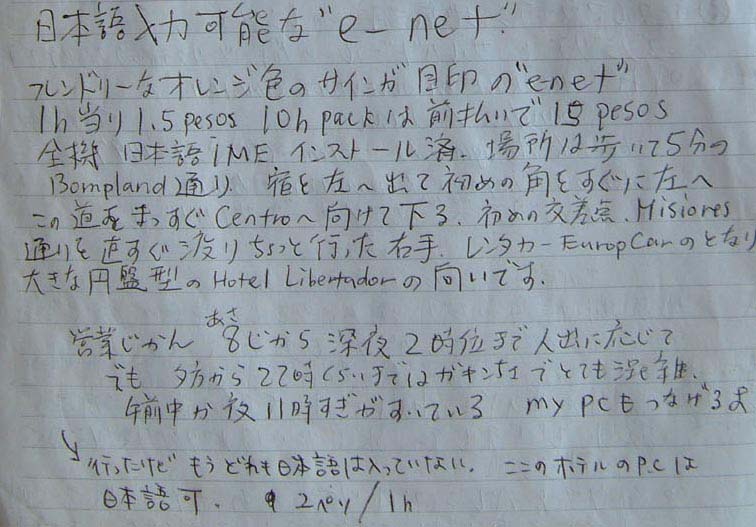 日本語入力可能な"e-net"
フレンドリーなオレンジ色のサインが目印の"enet"
1h当り1.5pesos 10h packは前払いで15 pesos
全機 日本語iME インストール済. 場所は歩いて5分の
Bompland通り. 宿を左へ出て初めの角をすぐに左へ
この道をまっすぐCentroへ向けて下る. 初めの交差点. Misiores
通りを直すぐ渡りちょっと行った右手. レンタカーEuropCarのとなり
大きな円盤型のHotel Libertadorの向いです.
あさ
営業じかん 8じから 深夜2時位まで人出に応じて
でも 夕方から22時くらいまではガキンちょでとても混雑.
午前中か夜11時すぎがすいている my PCもつなげるよ
↘行ったけど もうどれも日本語は入っていない. ここのホテルのP.Cは
日本語可. 2ペソ/1h